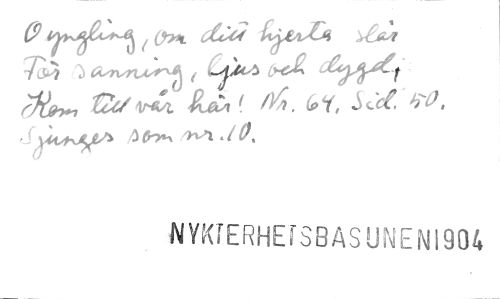 O yngling, om ditt hjerta slår
För sanning, ljus och dygd,
Kom till vår här! Nr. 64. Sid. 50.
Sjunges som nr. 10.
NYKTERHETSBASUNEN1904